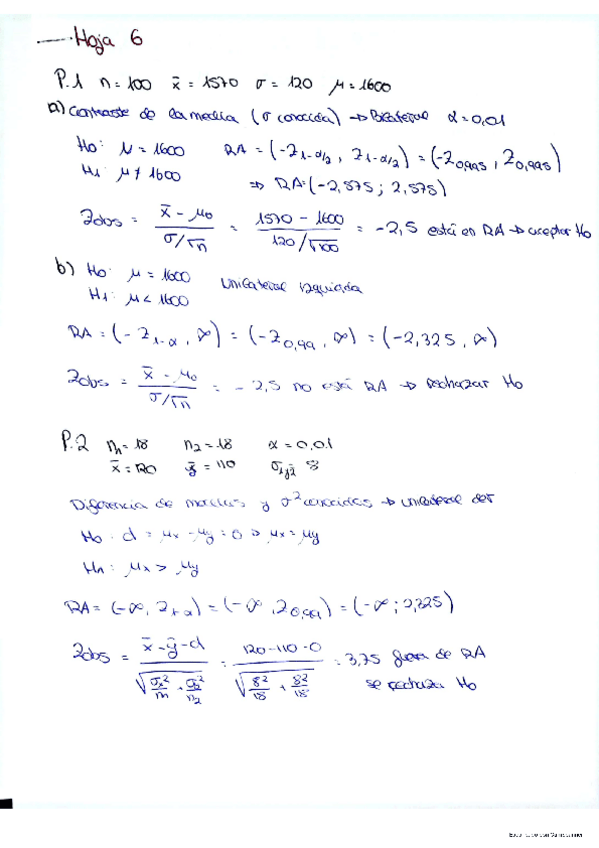 Hoja 6
P.1 n = 100 x̄ = 1570 σ = 120 μ = 1600
a) Contraste de la media (σ conocida) → Bilateral α = 0,01
H0: μ = 1600 RA = (-Z1-α/2 , Z1-α/2) = (-Z0,995 , Z0,995)
H1: μ ≠ 1600 ⇒ RA = (-2,575 ; 2,575)
Zobs = (x̄ - μ0)/(σ/√n) = (1570 - 1600)/(120/√100) = -2,5 está en RA → aceptar H0
b) H0: μ = 1600 Unilateral Izquierda
H1: μ < 1600
RA = (-Z1-α , ∞) = (-Z0,99 , ∞) = (-2,325 , ∞)
Zobs = (x̄ - μ0)/(σ/√n) = -2,5 no está RA → rechazar H0
P.2 n1 = 18 n2 = 18 α = 0,01
x̄ = 120 ȳ = 110 σ1y2 8
Diferencia de medias y σ² conocidas → unilateral der
H0: d = μx - μy = 0 → μx = μy
H1: μx > μy
RA = (-∞, Z1-α) = (-∞, Z0,99) = (-∞ ; 2,325)
Zobs = (x̄ - ȳ - d)/√(σx²/n1 + σy²/n2) = (120 - 110 - 0)/√(8²/18 + 8²/18) = 3,75 fuera de RA
se rechaza H0